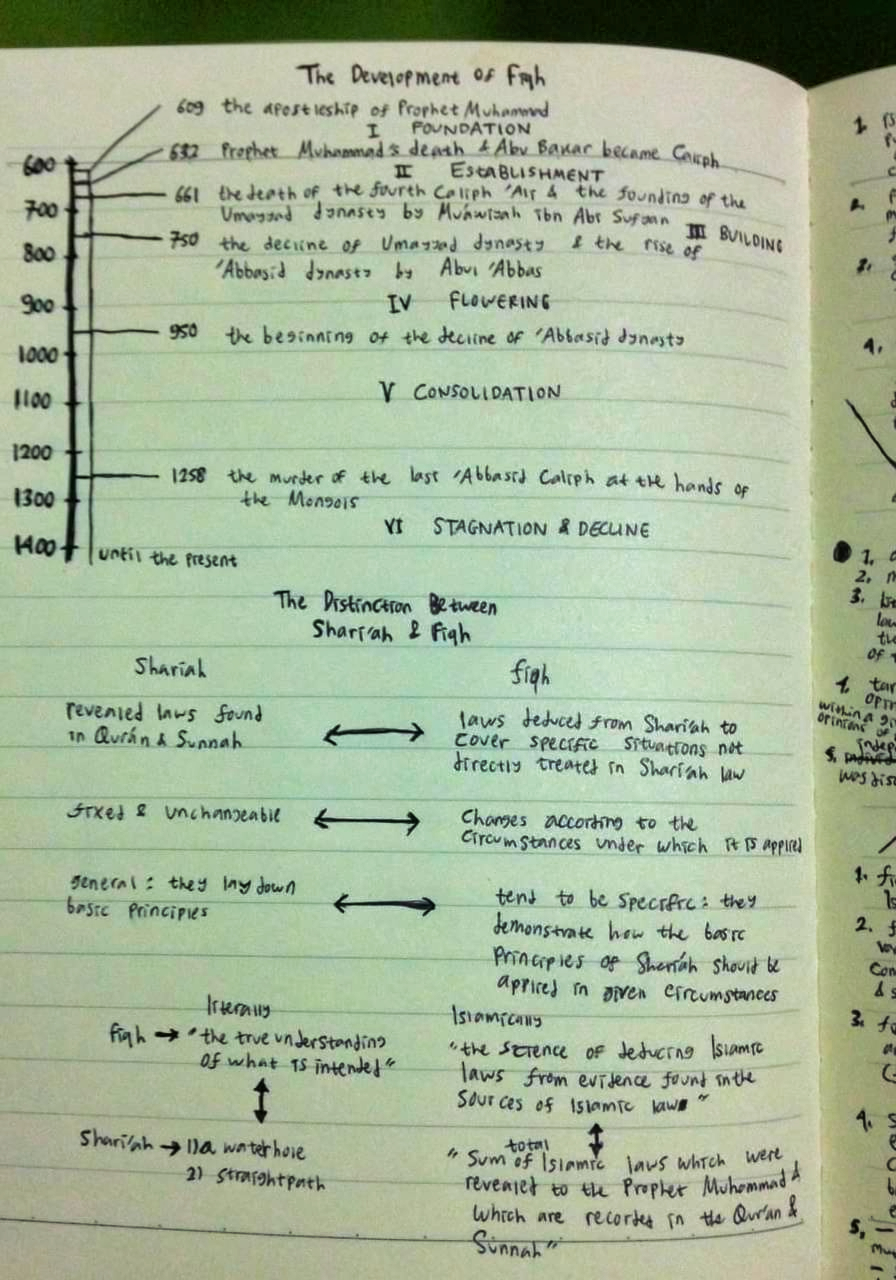 The Development of Fiqh
609 the apostleship of Prophet Muhammad
I FOUNDATION
632 Prophet Muhammad's death & Abu Bakar became Caliph
600
II ESTABLISHMENT
661 the death of the fourth Caliph 'Ali & the founding of the
Umayyad dynasty by Muáwiyah ibn Abi Sufyan
700
III BUILDING
750 the decline of Umayyad dynasty & the rise of
'Abbasid dynasty by Abul 'Abbas
800
IV FLOWERING
900
950 the beginning of the decline of 'Abbasid dynasty
1000
V CONSOLIDATION
1100
1200
1258 the murder of the last 'Abbasid Caliph at the hands of
the Mongols
1300
VI STAGNATION & DECLINE
1400
until the present
The Distinction Between
Shari'ah & Fiqh
Shariah
fiqh
revealed laws found
in Qurán & Sunnah
laws deduced from Shari'ah to
cover specific situations not
directly treated in Shari'ah law
fixed & unchangeable
Changes according to the
circumstances under which it is applied
general : they lay down
basic principles
tend to be specific : they
demonstrate how the basic
principles of Shariáh should be
applied in given circumstances
literally
fiqh → "the true understanding
of what is intended"
Islamically
"the science of deducing Islamic
laws from evidence found in the
sources of Islamic laws"
Shari'ah → 1) a waterhole
2) straight path
total
"Sum of Islamic laws which were
revealed to the Prophet Muhammad &
which are recorded in the Qur'an &
Sunnah"
1.
2.
3.
4.
1.
2.
3.
of
4.
opin
within a
opinions of
indep
5.
was dis
1. fi
2. f
3. f
4. S
5.